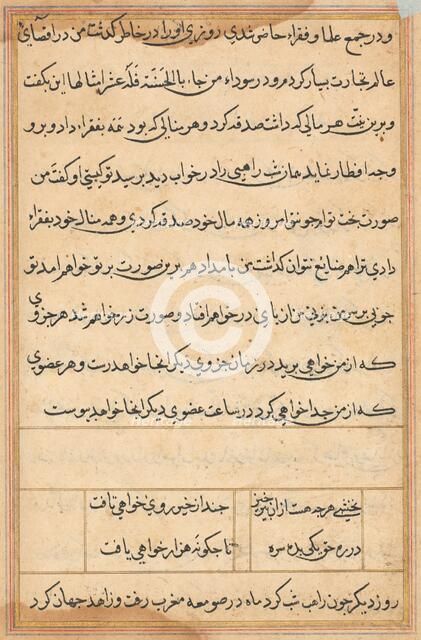 و در جمع علما و فقراء حاضر شدی روزی او را در خاطر گذشت من در اقصای
عالم تجارت بسیار کردم و در سوداء من جاء بالحسنة فله عشر امثالها این بگفت
و برین نیت هر مالی که داشت صدقه کرد و هر منالی که بود همه بفقراء داد و برو
وجه افطار نماند همان شب راهبی را در خواب دید پرسید تو کیستی او گفت من
صورت بخت توام چون تو امروز همه مال خود صدقه کردی و همه منال خود بفقراء
دادی ترا هم ضایع نتوان گذاشت من بامداد هم برین صورت بر تو خواهم آمد تو
چوبی بر سر من بزنی من از پای در خواهم افتاد و صورت زر خواهم شد هر جزوی
که از من خواهی برید در زمان جزوی دیگر آنجا خواهد رست و هر عضوی
که از من جدا خواهی کرد در ساعت عضوی دیگر آنجا خواهد پیوست
نخشبی هرچه هست از آن برخیز چند از خیر روی خواهی تافت
در ره حق یکی بده سره تا چگونه هزار خواهی یافت
روز دیگر چون راهب شب کرد ماه در صومعه مغرب رفت و زاهد جهان گرد